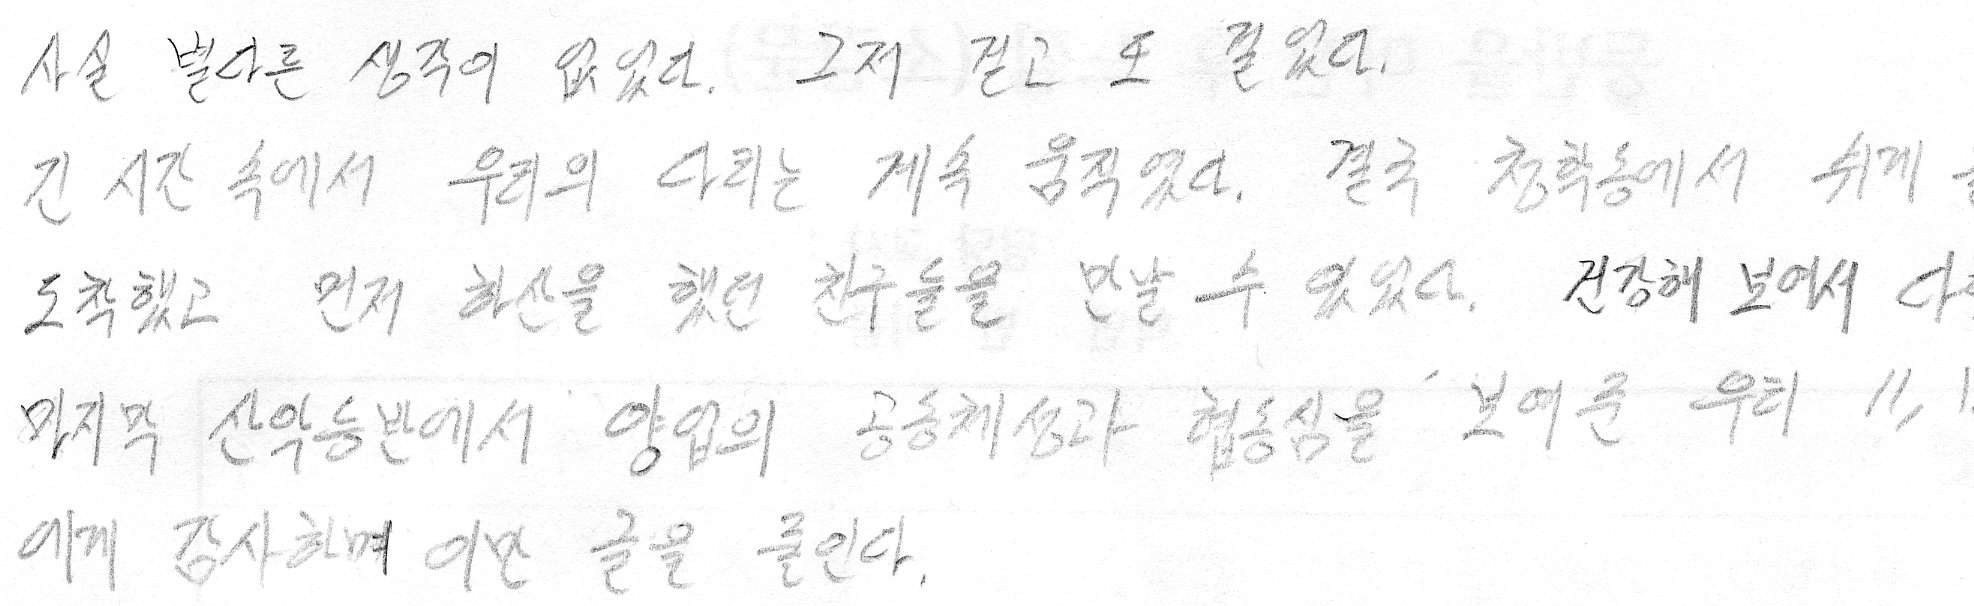 사실 별다른 생각이 없었다. 그저 걷고 또 걸었다.
긴 시간 속에서 우리의 다리는 계속 움직였다. 결국 청학동에서 쉬게
도착했고 먼저 하산을 했던 친구들을 만날 수 있었다. 건강해 보여서
마지막 산악등반에서 양업의 공동체성과 협동심을 보여준 우리 11,
에게 감사하며 이만 글을 줄인다.